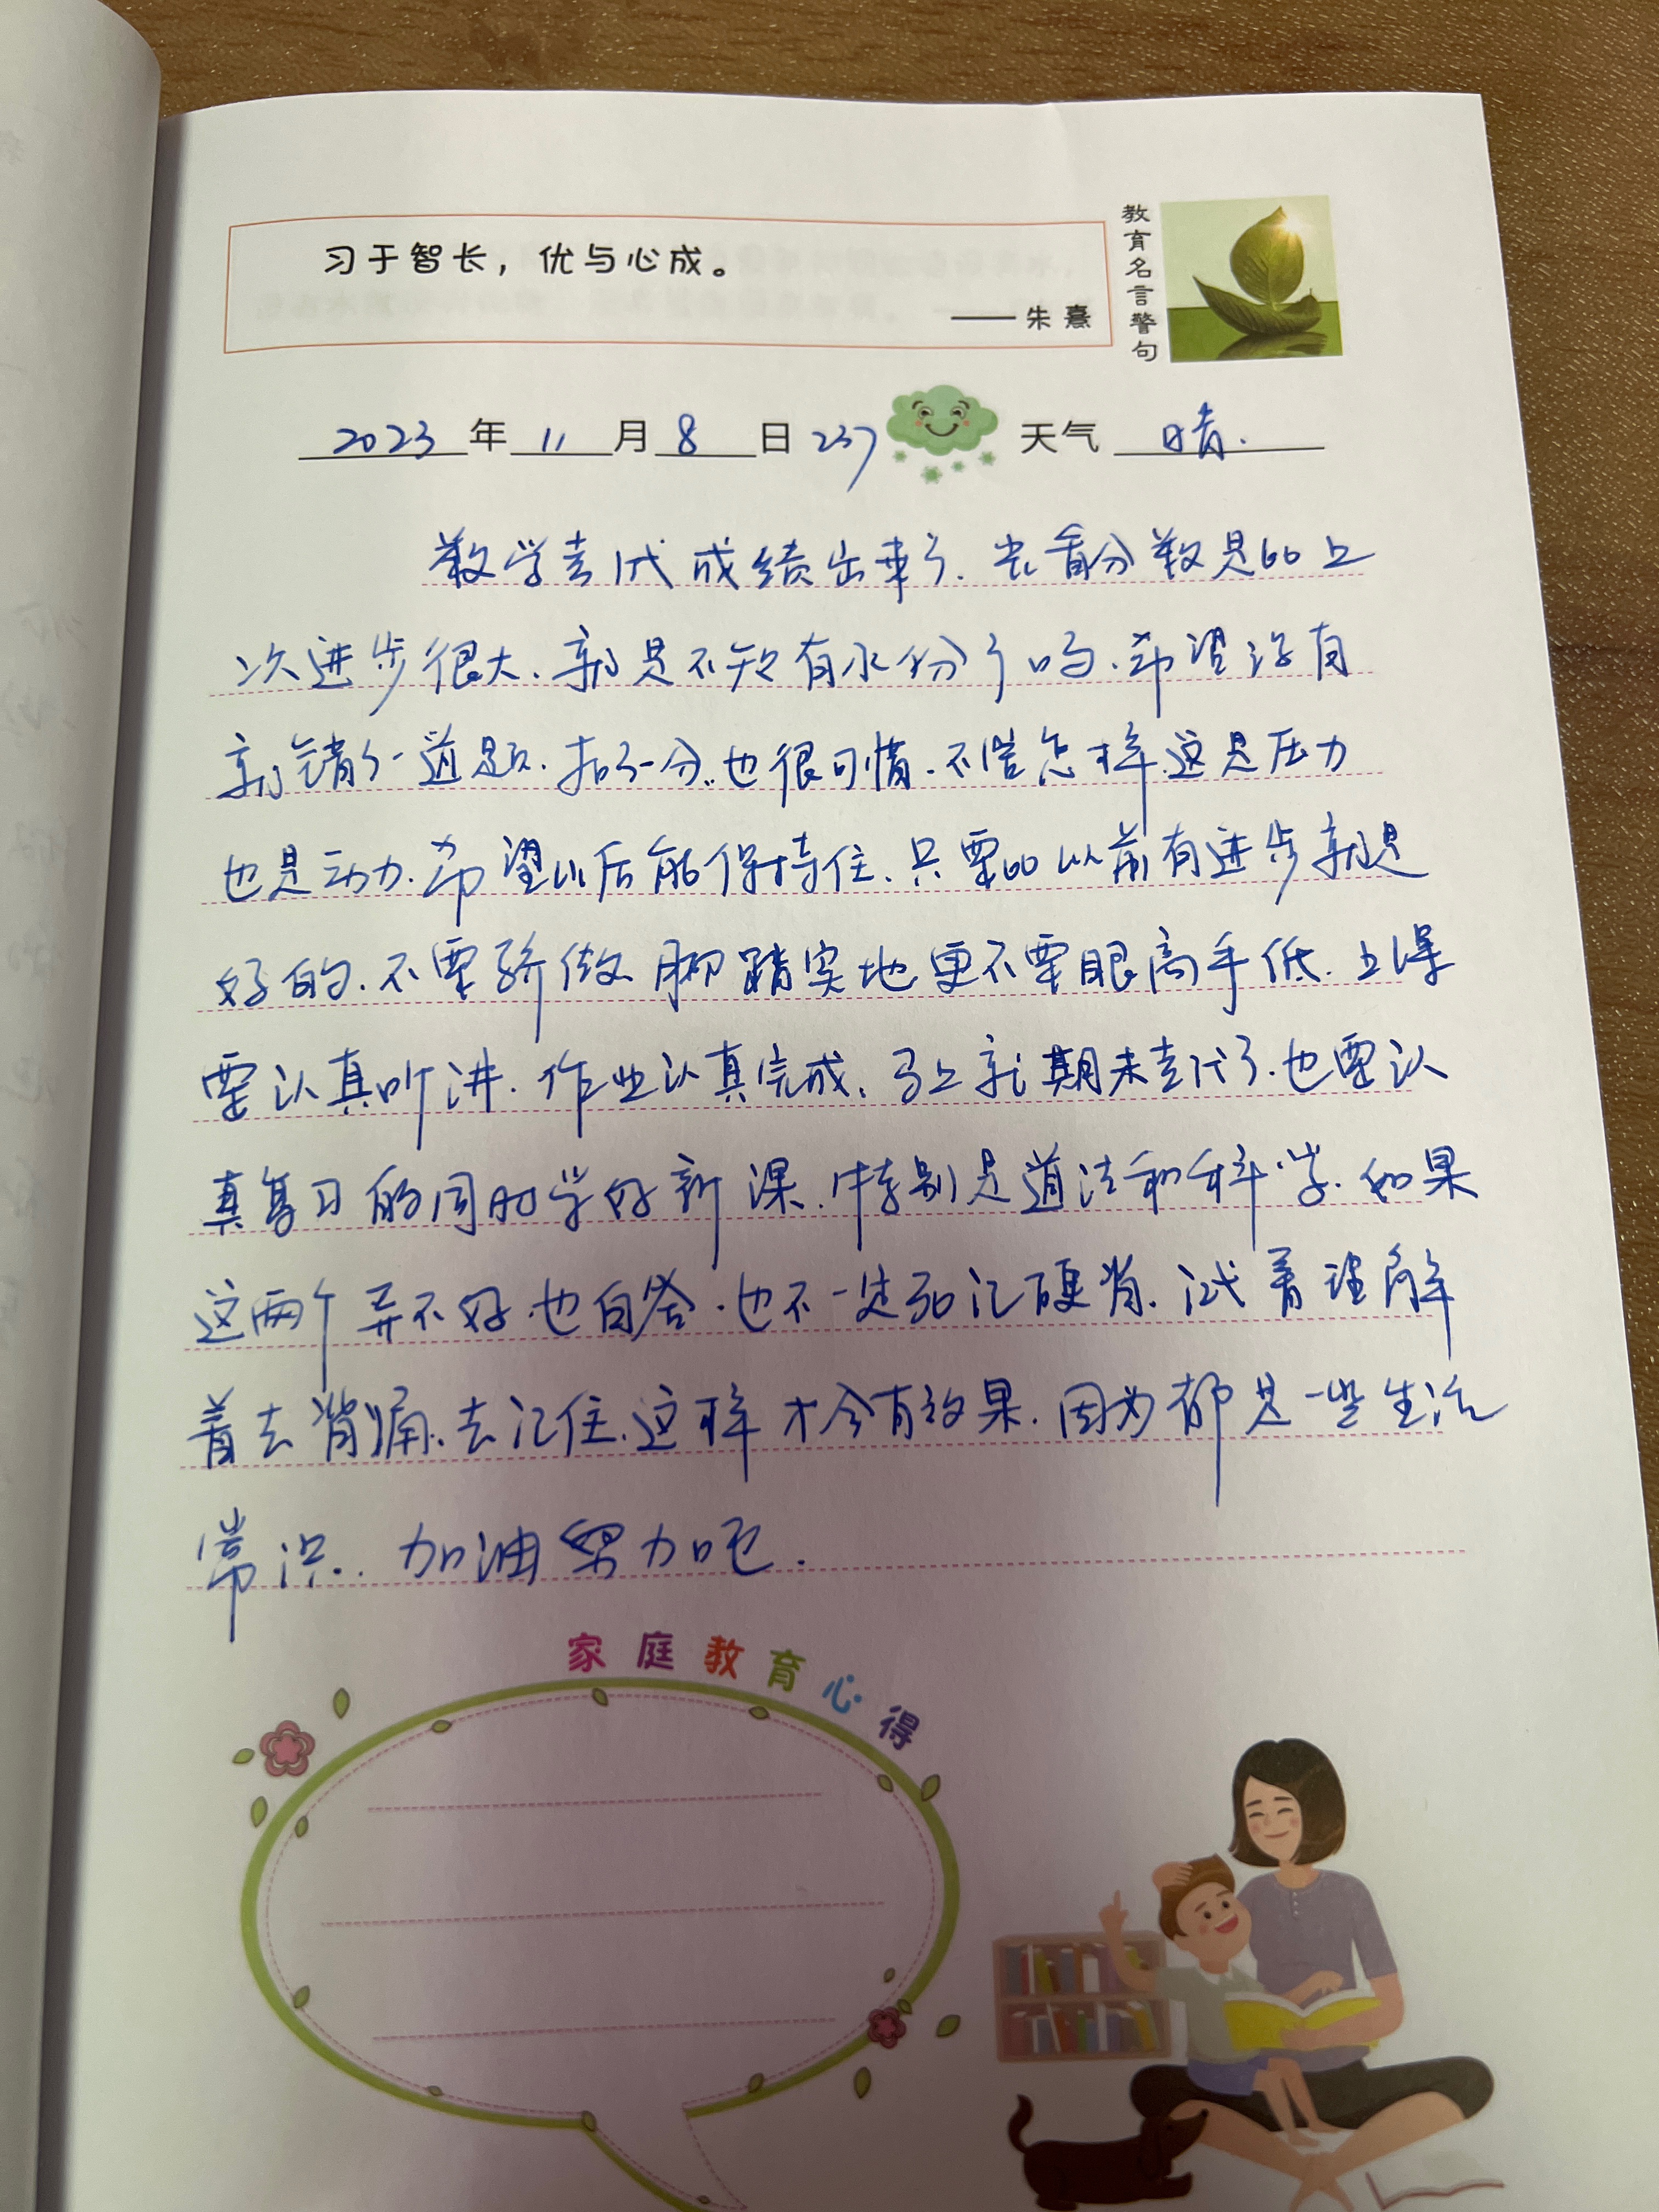 习于智长，优与心成。
——朱熹
教育名言警句
2023年11月8日 237 天气 晴.
数学考试成绩出来了.光看分数是比上
次进步很大.就是不知有水份了吗.希望没有
就错了一道题.扣了一分..也很可惜.不管怎样.这是压力
也是动力.希望以后能保持住.只要比以前有进步就是
好的.不要骄傲.脚踏实地更不要眼高手低.上课
要认真听讲.作业认真完成.马上就期末考试了.也要认
真复习的同时学好新课.特别是道法和科学.如果
这两个弄不好.也白答.也不一定死记硬背.试着理解
着去背诵.去记住.这样才会有效果.因为都是一些生活
常识..加油努力吧.
家庭教育心得